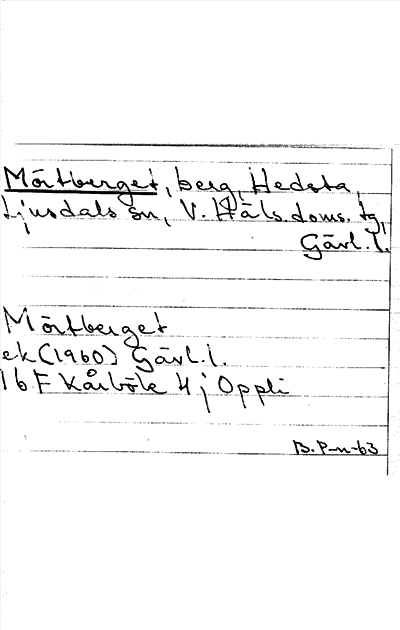 Mörtberget, berg, Hedsta,
Ljusdals sn, V. Häls. doms. tg,
Gävl. l.
Mörtberget
ek (1960) Gävl. l.
16 F Kårböle 4 j Oppli
B. P-n-63